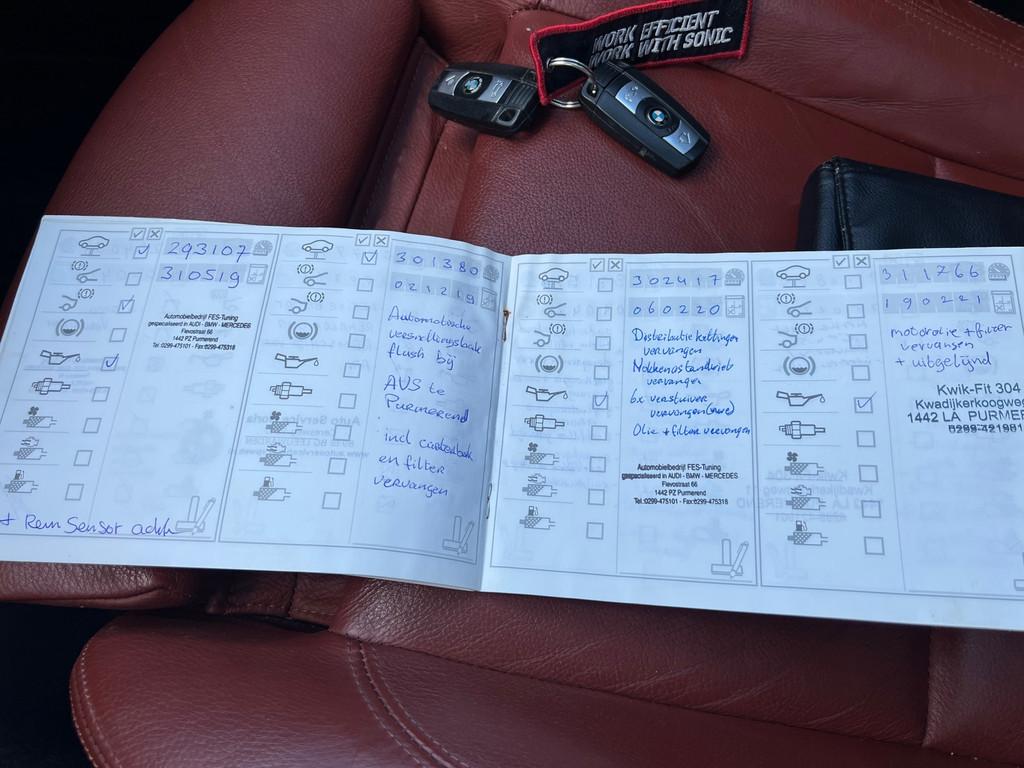 WORK EFFICIENT
WORK WITH SONIC
293107
310519
Automobielbedrijf FES-Tuning
gespecialiseerd in AUDI - BMW - MERCEDES
Flevostraat 66
1442 PZ Purmerend
Tel.:0299-475101 - Fax:0299-475318
+ Rem Sensor achter
301380
021219
Automatische
versnellingsbak
flush bij
AVS te
Purmerend
incl carterbak
en filter
vervangen
302417
060220
Distributie kettingen
vervangen
Nokkenastandwiel
vervangen
6x verstuiver
vervangen
Olie + filter vervangen
Automobielbedrijf FES-Tuning
gespecialiseerd in AUDI - BMW - MERCEDES
Flevostraat 66
1442 PZ Purmerend
Tel.:0299-475101 - Fax:0299-475318
311266
190221
motorolie + filter
vervangen
+ uitgelijnd
Kwik-Fit 304
Kwadijkerkoogweg
1442 LA PURMER
0299-421981